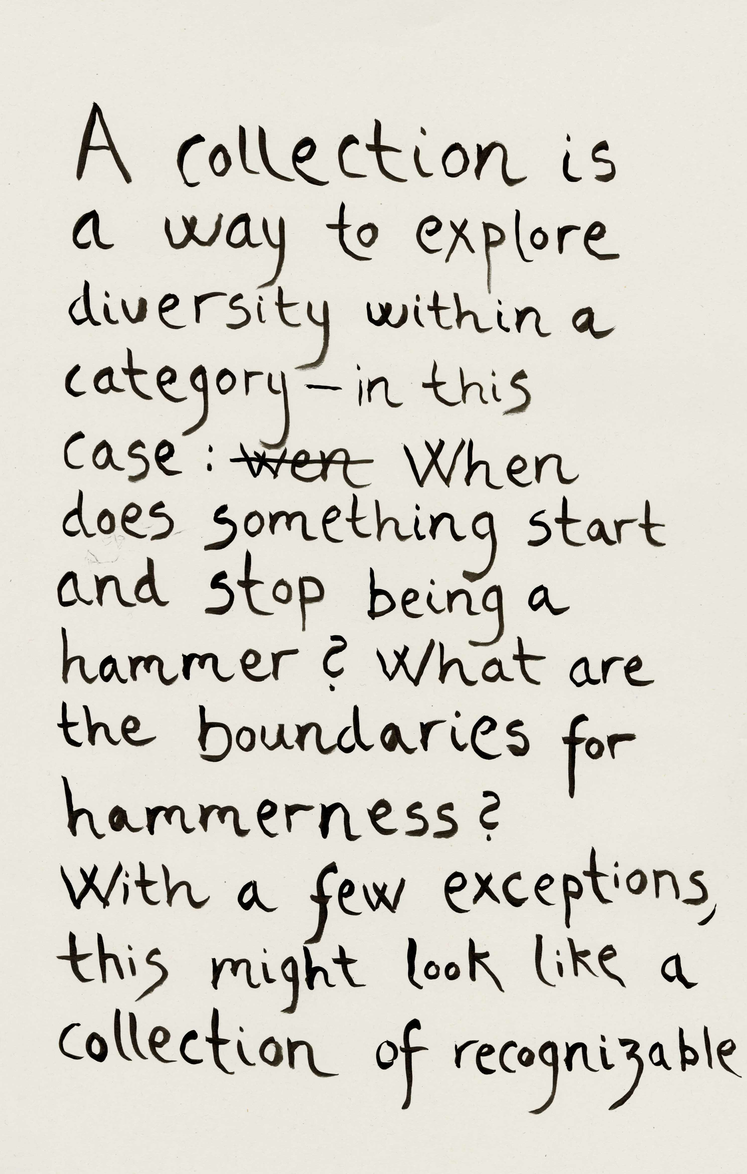 A collection is
a way to explore
diversity within a
category – in this
case : wen When
does something start
and stop being a
hammer ? What are
the boundaries for
hammerness ?
With a few exceptions,
this might look like a
collection of recognizable